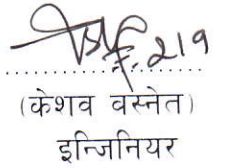 219
(केशव वस्नेत)
इन्जिनियर